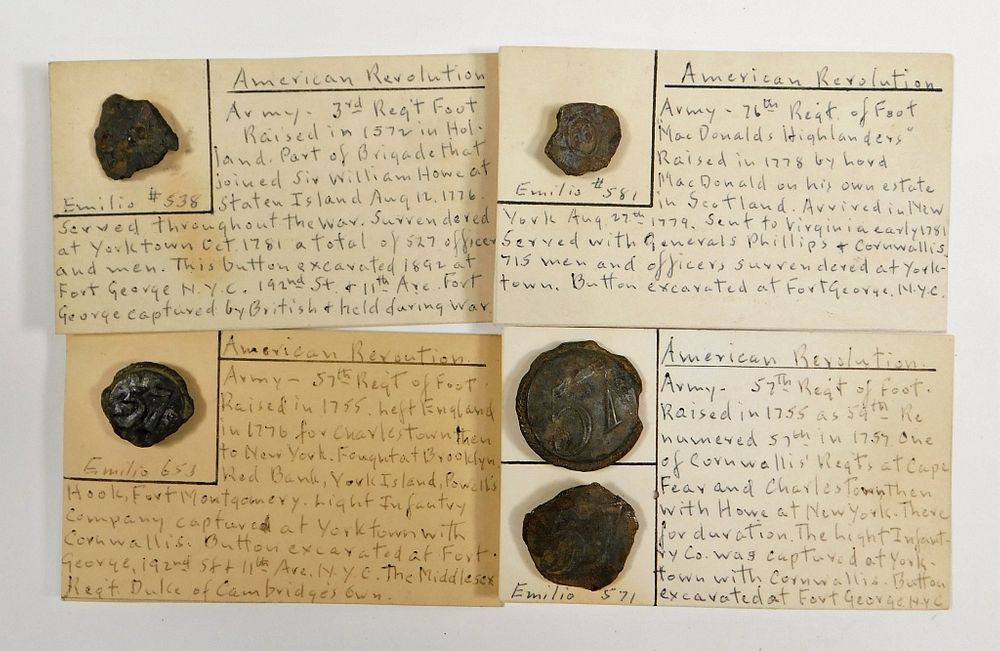 American Revolution
Army - 3rd Reg't Foot
Raised in 1572 in Hol-
land. Part of Brigade that
joined Sir William Howe at
Emilio #538
Staten Island Aug 12, 1776.
Served throughout the war. Surrendered
at Yorktown Oct. 1781 a total of 527 officer
and men. This button excavated 1892 at
Fort George N.Y.C. 192nd St. & 11th Ave. Fort
George captured by British & held during war
American Revolution
Army - 76th Regt. of Foot
"MacDonalds Highlanders"
Raised in 1778 by Lord
MacDonald on his own estate
Emilio #581
in Scotland. Arrived in New
York Aug. 27th 1779. Sent to Virginia early 1781
Served with Generals Phillips & Cornwallis.
715 men and officers surrendered at York-
town. Button excavated at Fort George, N.Y.C.
American Revoution.
Army - 57th Reg't of Foot.
Raised in 1755. Left England
in 1776 for Charlestown then
to New York. Fought at Brooklyn,
57
Emilio 653
Red Bank, York Island, Powell's
Hook, Fort Montgomery. Light Infantry
Company captured at Yorktown with
Cornwallis. Button excavated at Fort
George, 192nd St & 11th Ave. N.Y.C. The Middlesex
Regt. Duke of Cambridges Own.
American Revolution.
Army - 57th Reg't of Foot.
Raised in 1755 as 59th Re
numered 57th in 1757. One
of Cornwallis' Reg'ts at Cape
Fear and Charlestown then
with Howe at New York. There
for duration. The Light Infant-
ry Co. was captured at York-
town with Cornwallis. Button
excavated at Fort George, N.Y.C
57
Emilio 571